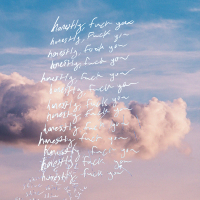 honestly, fuck you
honestly, Fuck you
honestly, Fuck you
honestly, fuck you
honestly, fuck you
honestly, fuck you
honestly, fuck you
honestly, fuck you
honestly, fuck you
honestly, fuck you
honestly, fuck you
honestly, fuck you
honestly, fuck you